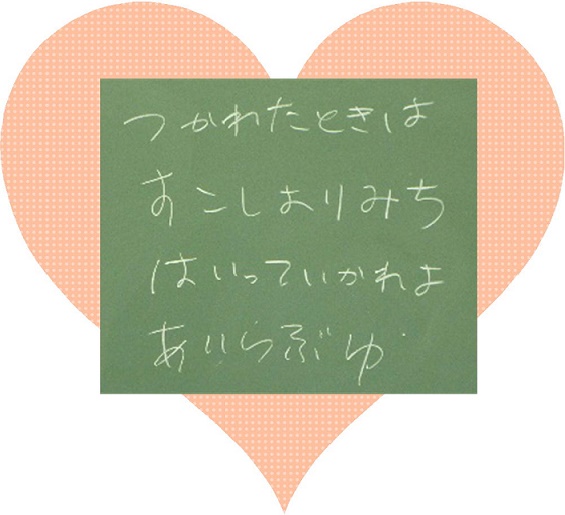 つかれたときは
すこしよりみち
はいっていかれよ
あいらぶゆ